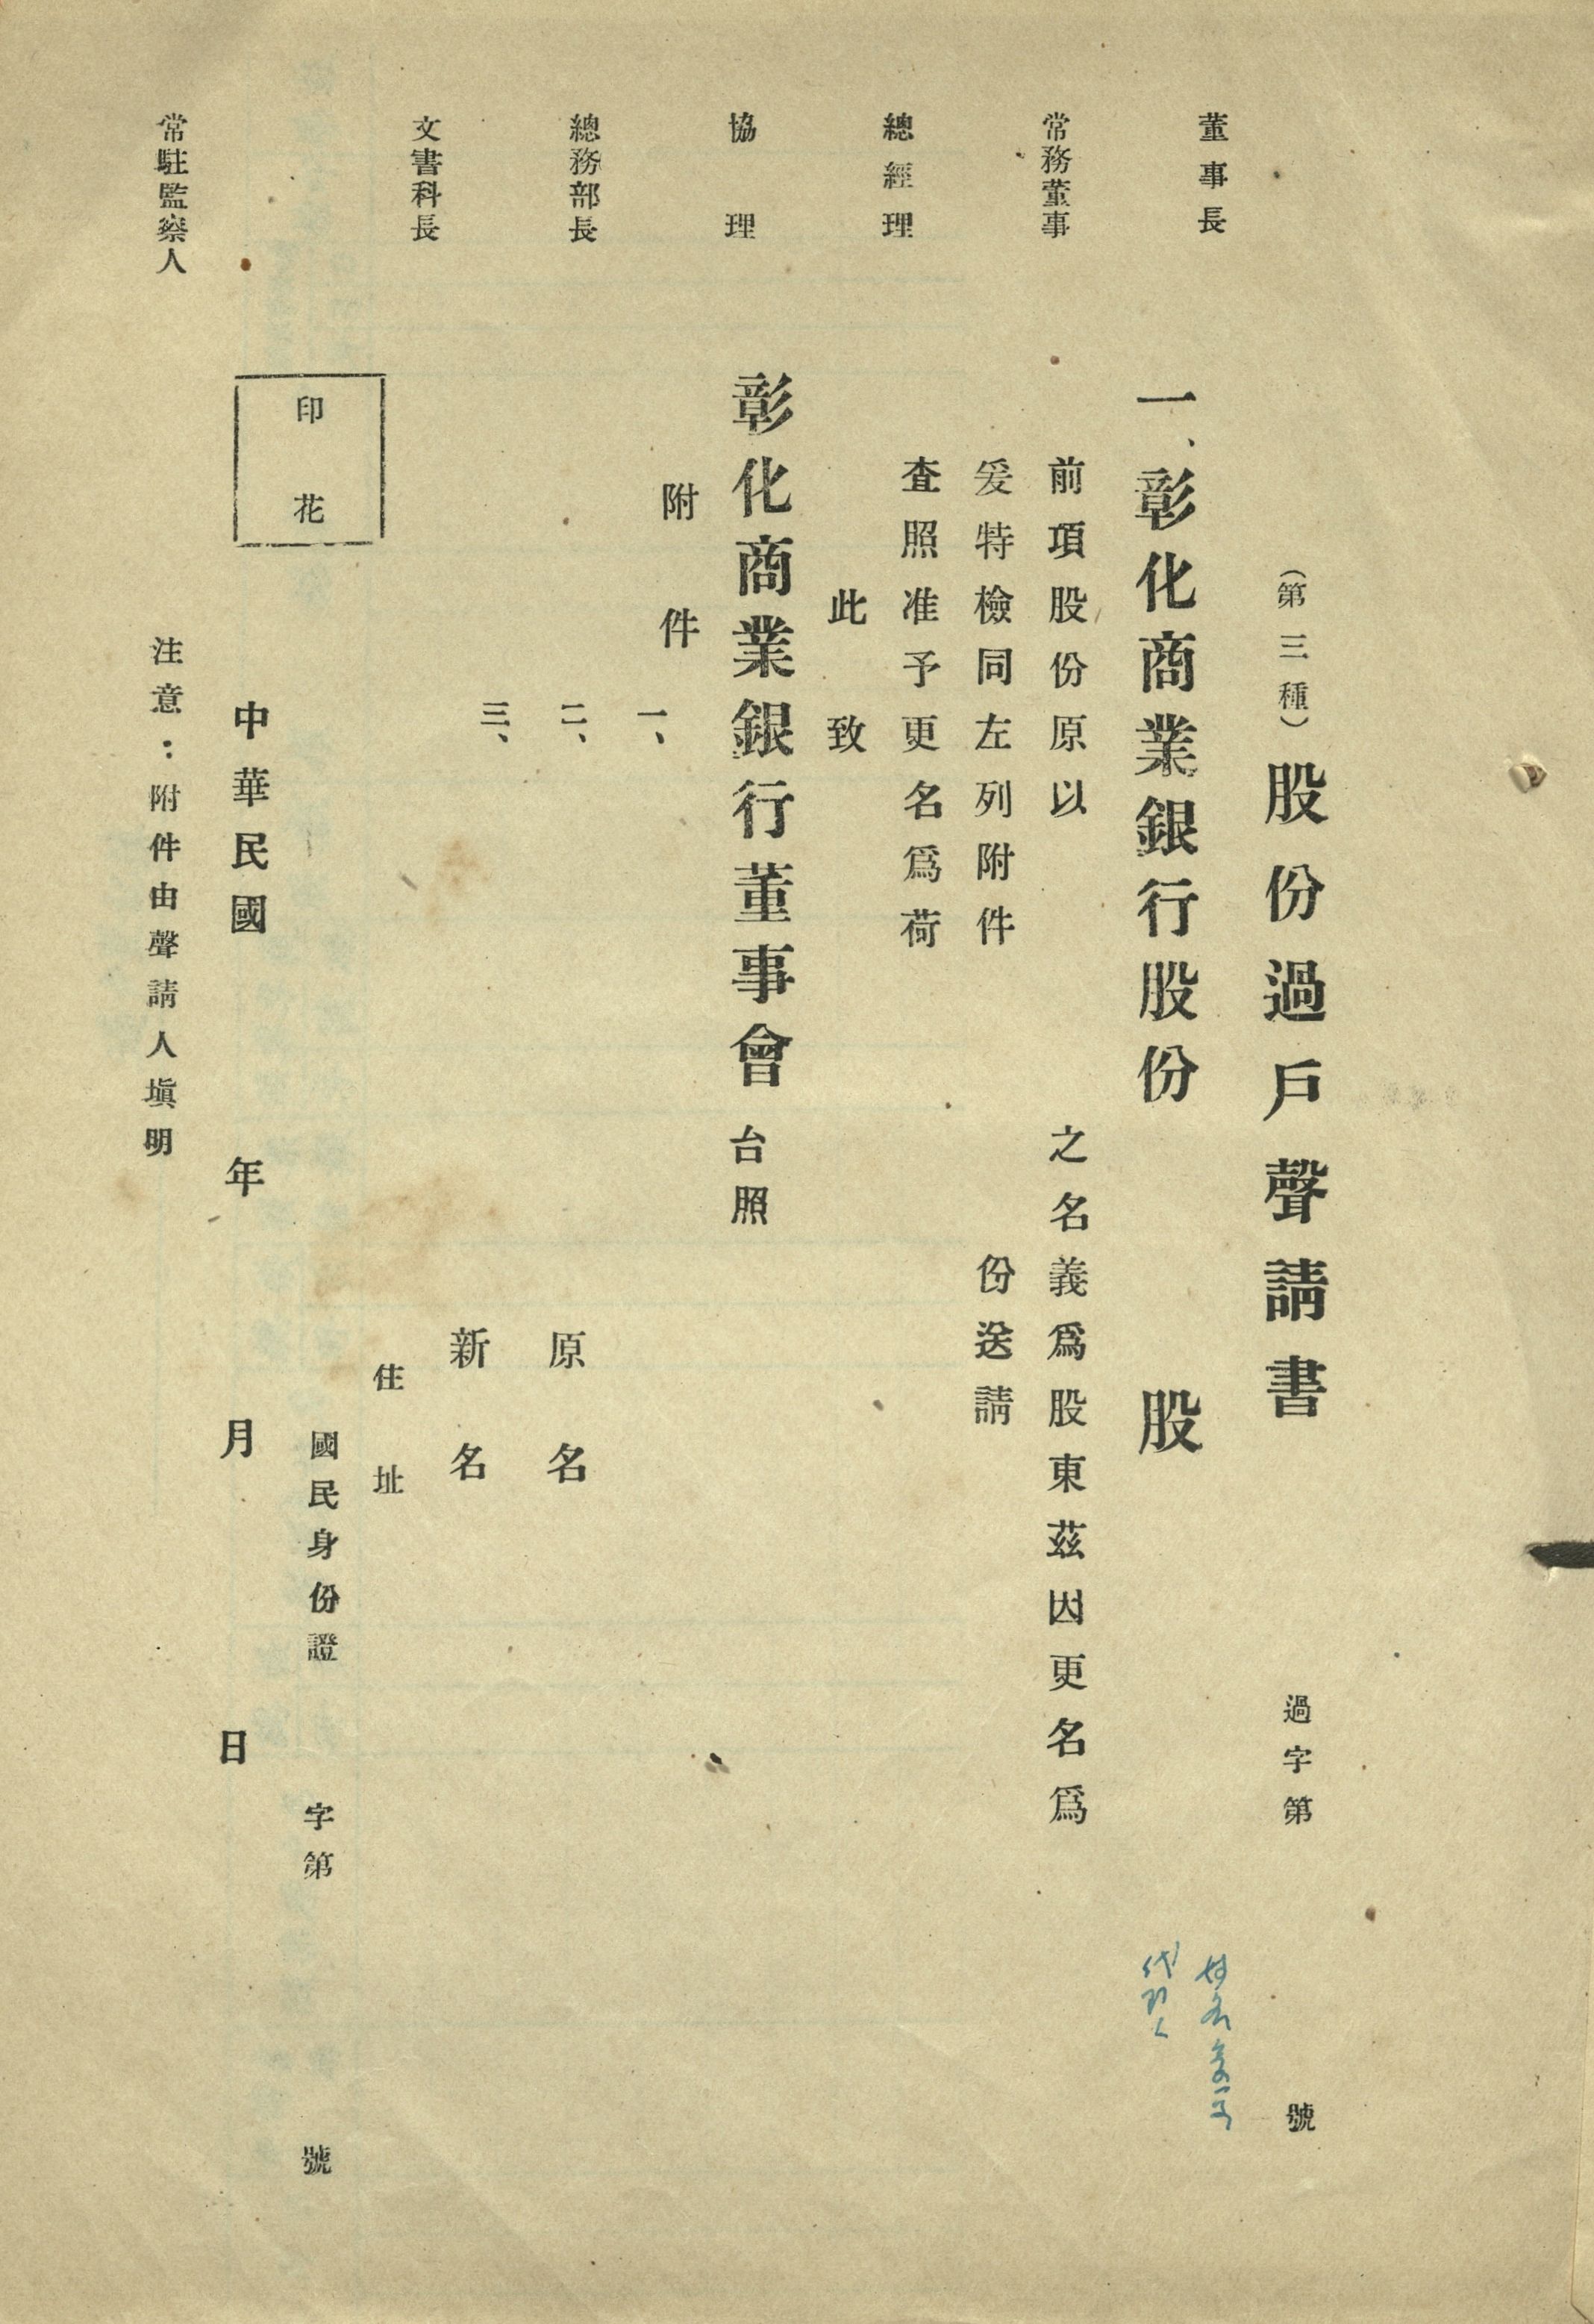 董事長
常務董事
總經理
協理
總務部長
文書科長
常駐監察人
（第三種）股份過戶聲請書　過字第　號
一、彰化商業銀行股份　股
前項股份原以　之名義爲股東茲因更名爲
爰特檢同左列附件　份送請
查照准予更名爲荷
此致
彰化商業銀行董事會　台照
附件　一、
二、
三、
原名
新名
住址
國民身份證　字第　號
印花
中華民國　年　月　日
注意：附件由聲請人塡明